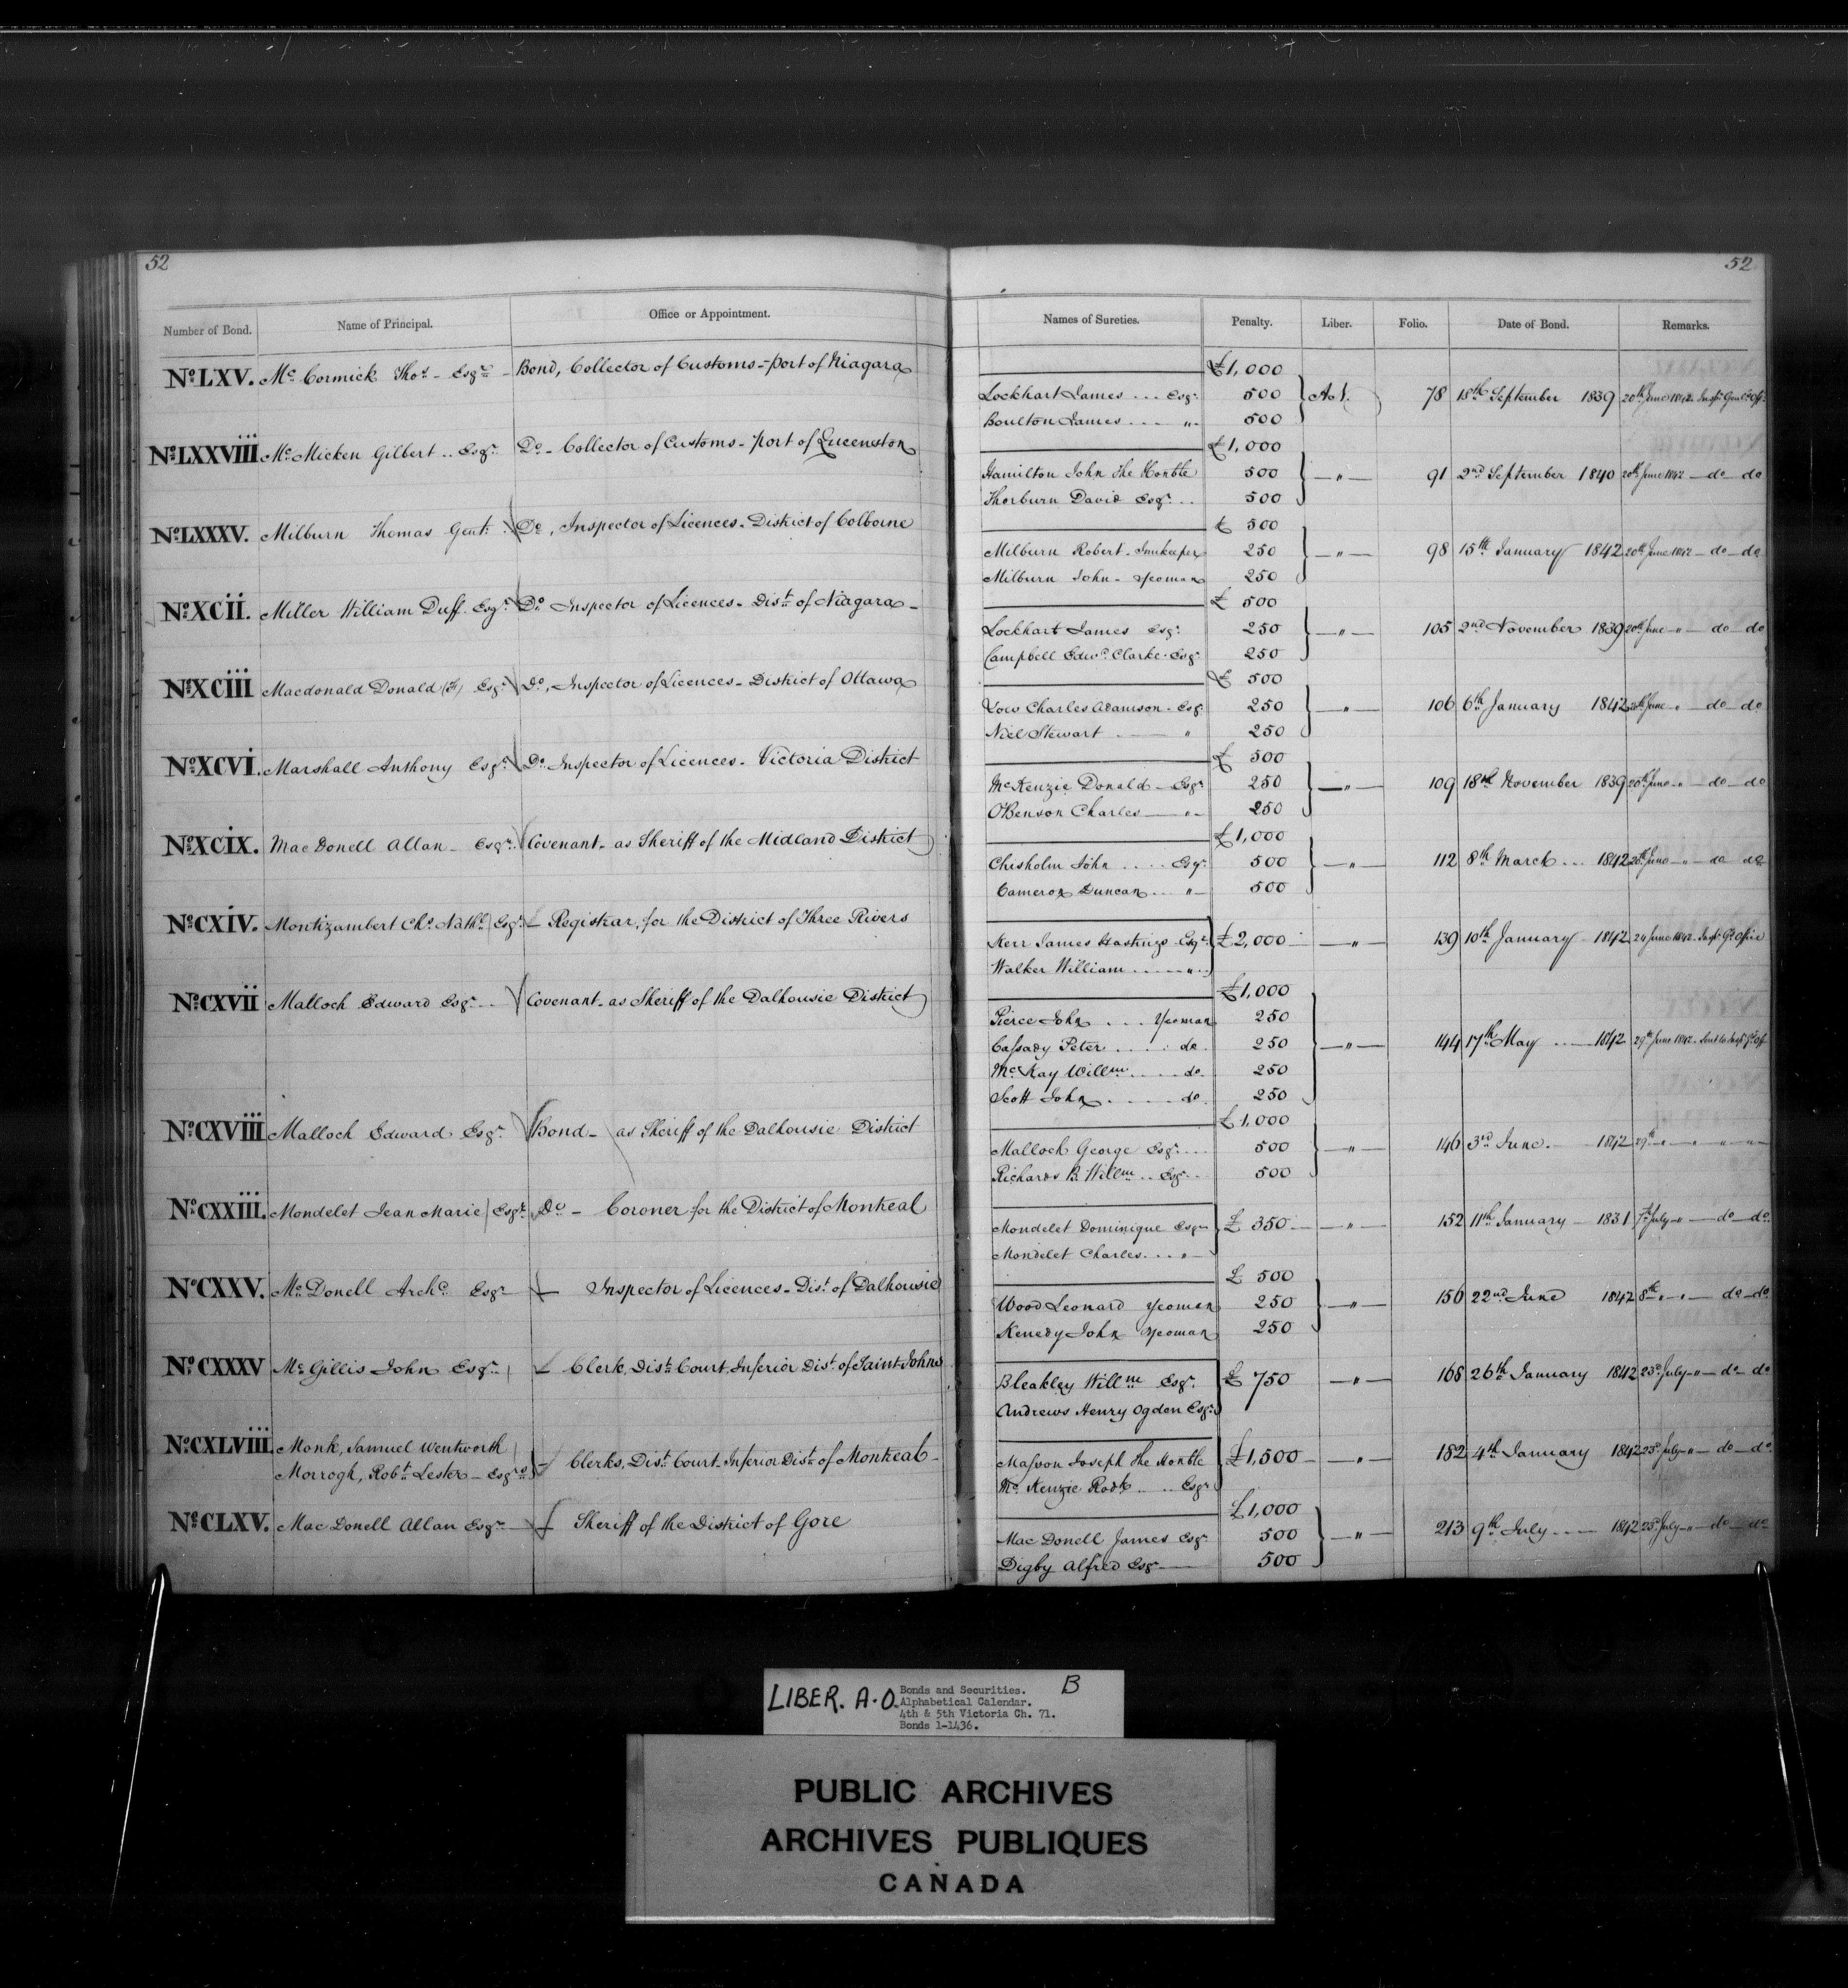 52
52
Number of Bond. Name of Principal. Office or Appointment. Names of Sureties. Penalty. Liber. Folio. Date of Bond. Remarks.
No. LXV. Mc Cormick Thos - Esqre - Bond, Collector of Customs - port of Niagara £1,000
Lockhart James ... Esqr. 500 A.O. 78 18th September 1839 20th June 1842. Inspr. Genl's Off.
Boulton James .... " 500
No. LXXVIII Mc Micken Gilbert .. Esqr. Do - Collector of Customs - port of Queenston £1,000
Hamilton John The Honble 500 — " — 91 2nd September 1840 20th June 1842 — do — do
Thorburn David Esqr. .. 500
No. LXXXV. Milburn Thomas Gent. Do, Inspector of Licences - District of Colborne £ 500
Milburn Robert - Innkeeper 250 — " — 98 15th January 1842 20th June 1842 — do — do
Milburn John - Yeoman 250
No. XCII. Miller William Duff. Esqr. Do Inspector of Licences - Dist. of Niagara - £ 500
Lockhart James Esqr. 250 — " — 105 2nd November 1839 20th June — " — do — do
Campbell Edwd. Clarke - Esqr. 250
No. XCIII Macdonald Donald Esqr. Do, Inspector of Licences - District of Ottawa £ 500
Low Charles Adamson - Esqr. 250 — " — 106 6th January 1842 20th June — " — do — do
Niel Stewart — " 250
No. XCVI. Marshall Anthony Esqr. Do Inspector of Licences - Victoria District £ 500
McKenzie Donald — Esqr. 250 — " — 109 18th November 1839 20th June — " — do — do
O'Benson Charles — " — 250
No. XCIX. Mac Donell Allan - Esqr. Covenant - as Sheriff of the Midland District £1,000
Chisholm John .... Esqr. 500 — " — 112 8th March ... 1842 20th June — " — do do
Cameron Duncan ... " — 500
No. CXIV. Montizambert Chs. Nathl. Esqr. — Registrar, for the District of Three Rivers
Kerr James Hastings Esqr. £2,000 — — " — 139 10th January 1842 24 June 1842. Inspr. Gl Office
Walker William ..... "
No. CXVII Malloch Edward Esqr. ... Covenant - as Sheriff of the Dalhousie District £1,000
Pierce John ... Yeoman 250
Cassady Peter .... do. 250 — " — 144 17th May — 1842 29th June 1842. Sent to Inspr. Gl Of.
McKay Willm. .... do. 250
Scott John ..... do. 250
No. CXVIII Malloch Edward Esqr. Bond - as Sheriff of the Dalhousie District £1,000
Malloch George Esqr. ... 500 — " — 146 3rd June. — 1842 29th " — " — " — " —
Richards B. Willm .. Esqr. .. 500
No. CXXIII. Mondelet Jean Marie Esqr. Do - Coroner for the District of Montreal
Mondelet Dominique Esqr. £ 350 — — " — 152 11th January — 1831 7th July — " — do — do.
Mondelet Charles ... " —
No. CXXV. Mc Donell Archd. Esqr. — Inspector of Licences - Dist. of Dalhousie £ 500
Wood Leonard Yeoman 250 — " — 156 22nd June 1842 8th — " — " — do — do.
Kenedy John Yeoman 250
No. CXXXV Mc Gillis John Esqr. — Clerk, Dist. Court, Inferior Dist. of Saint Johns
Bleakley Willm. Esqr. £ 750 — " — 168 26th January 1842 23d July — " — do — do
Andrews Henry Ogden Esqr.
No. CXLVIII. Monk, Samuel Wentworth
Morrogh, Robt. Lester — Esqrs — Clerks, Dist. Court - Inferior Dist. of Montreal - Masson Joseph The Honble £1,500 — — " — 182 4th January 1842 23d July — " — do — do
Mc Kenzie Rodk ... Esqr.
No. CLXV. Mac Donell Allan Esqr. — Sheriff of the District of Gore £1,000
Mac Donell James Esqr. 500 — " — 213 9th July ..... 1842 23d July — " — do — do
Digby Alfred Esqr. — 500
LIBER. A.O. Bonds and Securities. B
Alphabetical Calendar.
4th & 5th Victoria Ch. 71.
Bonds 1-1436.
PUBLIC ARCHIVES
ARCHIVES PUBLIQUES
CANADA